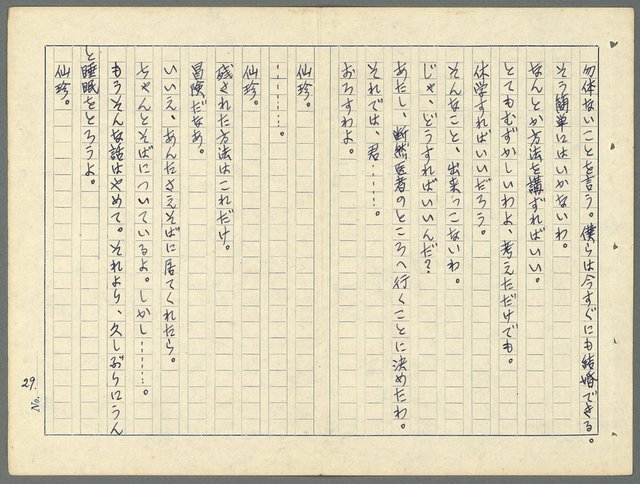 勿体ないことを言う。僕らは今すぐにも結婚できる。
そう簡単にはいかないわ。
なんとか方法を講ずればいい。
とてもむずかしいわよ、考えただけでも。
休学すればいいだろう。
そんなこと、出来っこないわ。
じゃ、どうすればいいんだ？
あたし、断然医者のところへ行くことに決めたわ。
それでは、君………。
おろすわよ。
仙珍。
………。
仙珍。
残された方法はこれだけ。
冒険だなあ。
いいえ、あんたさえそばに居てくれたら。
ちゃんとそばについているよ。しかし………。
もうそんな話はやめて。それより、久しぶりにうん
と睡眠をとろうよ。
仙珍。
No. 29.